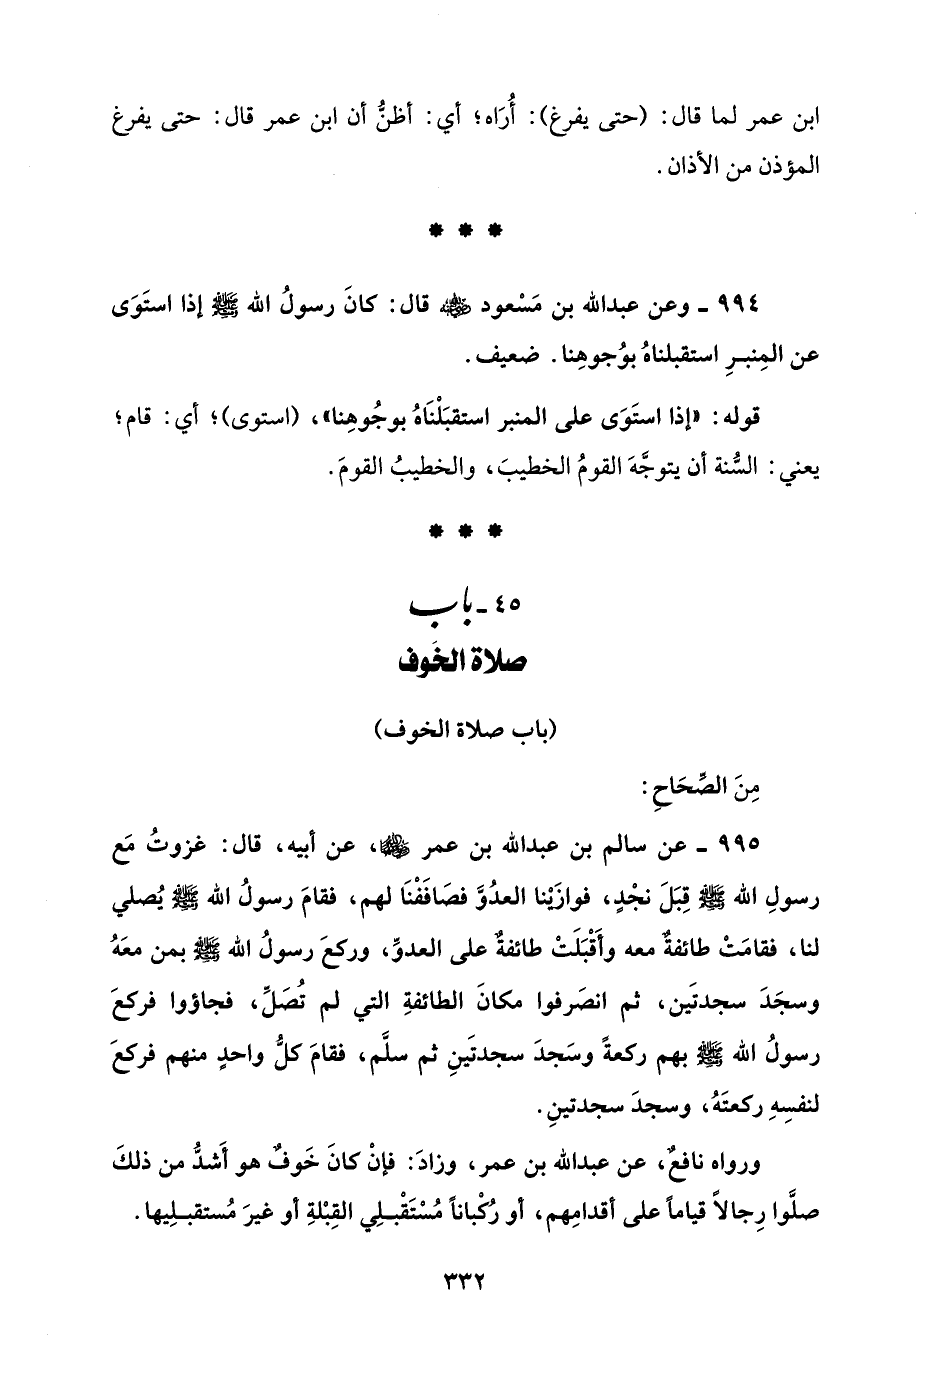 ابن عمر لما قال: (حتى يفرغ): أُرَاه؛ أي: أظنُّ أن ابن عمر قال: حتى يفرغ
المؤذن من الأذان.
* * *
٩٩٤ ـ وعن عبدالله بن مَسْعود ﵁ قال: كانَ رسولُ الله ﷺ إذا استَوَى
عن المِنبرِ استقبلناهُ بوُجوهِنا. ضعيف.
قوله: «إذا استَوَى على المنبر استقبَلْنَاهُ بوجُوهِنا»، (استوى)؛ أي: قام؛
يعني: السُّنة أن يتوجَّهَ القومُ الخطيبَ، والخطيبُ القومَ.
* * *
٤٥ ـ باب
صلاة الخَوف
(باب صلاة الخوف)
مِنَ الصِّحَاحِ:
٩٩٥ ـ عن سالم بن عبدالله بن عمر ﵃، عن أبيه، قال: غزوتُ مَع
رسولِ الله ﷺ قِبَلَ نجْدٍ، فوازَيْنا العدُوَّ فصَافَفْنَا لهم، فقامَ رسولُ الله ﷺ يُصلي
لنا، فقامَتْ طائفةٌ معه وأَقْبَلَتْ طائفةٌ على العدوِّ، وركعَ رسولُ الله ﷺ بمن معَهُ
وسجَدَ سجدتَين، ثم انصَرفوا مكانَ الطائفةِ التي لم تُصَلِّ، فجاؤوا فركعَ
رسولُ الله ﷺ بهم ركعةً وسَجدَ سجدتَينِ ثم سلَّم، فقامَ كلُّ واحدٍ منهم فركعَ
لنفسِهِ ركعتَهُ، وسجدَ سجدتينِ.
ورواه نافعٌ، عن عبدالله بن عمر، وزادَ: فإنْ كانَ خَوفٌ هو أَشدُّ من ذلكَ
صلَّوا رِجالاً قياماً على أقدامِهم، أو رُكْباناً مُسْتَقْبِلِي القِبْلةِ أو غيرَ مُستقبلِيها.
٣٣٢